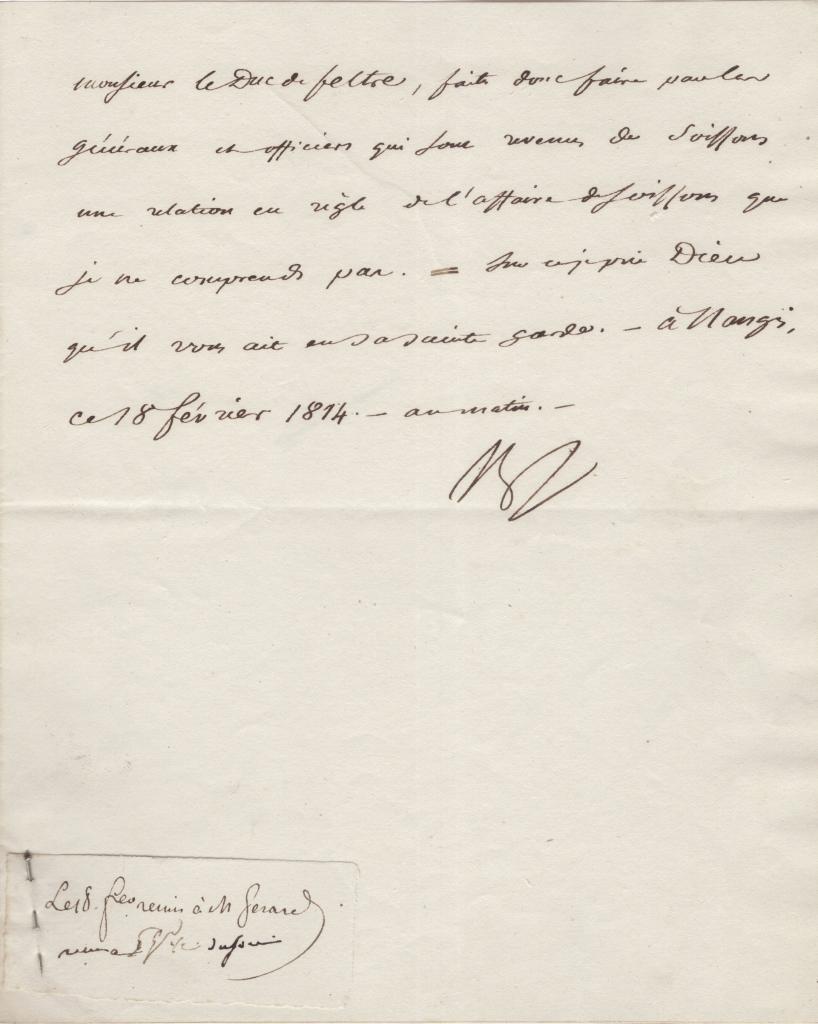 Monsieur le Duc de feltre, faites donc faire par les
généraux et officiers qui sont revenus de Soissons
une relation en règle de l'affaire de Soissons que
je ne comprends pas. = Sur ce je prie Dieu
qu'il vous ait en sa sainte garde. – à Nangis,
ce 18 février 1814. – au matin. –
Le 18 feo remis à M Gerard